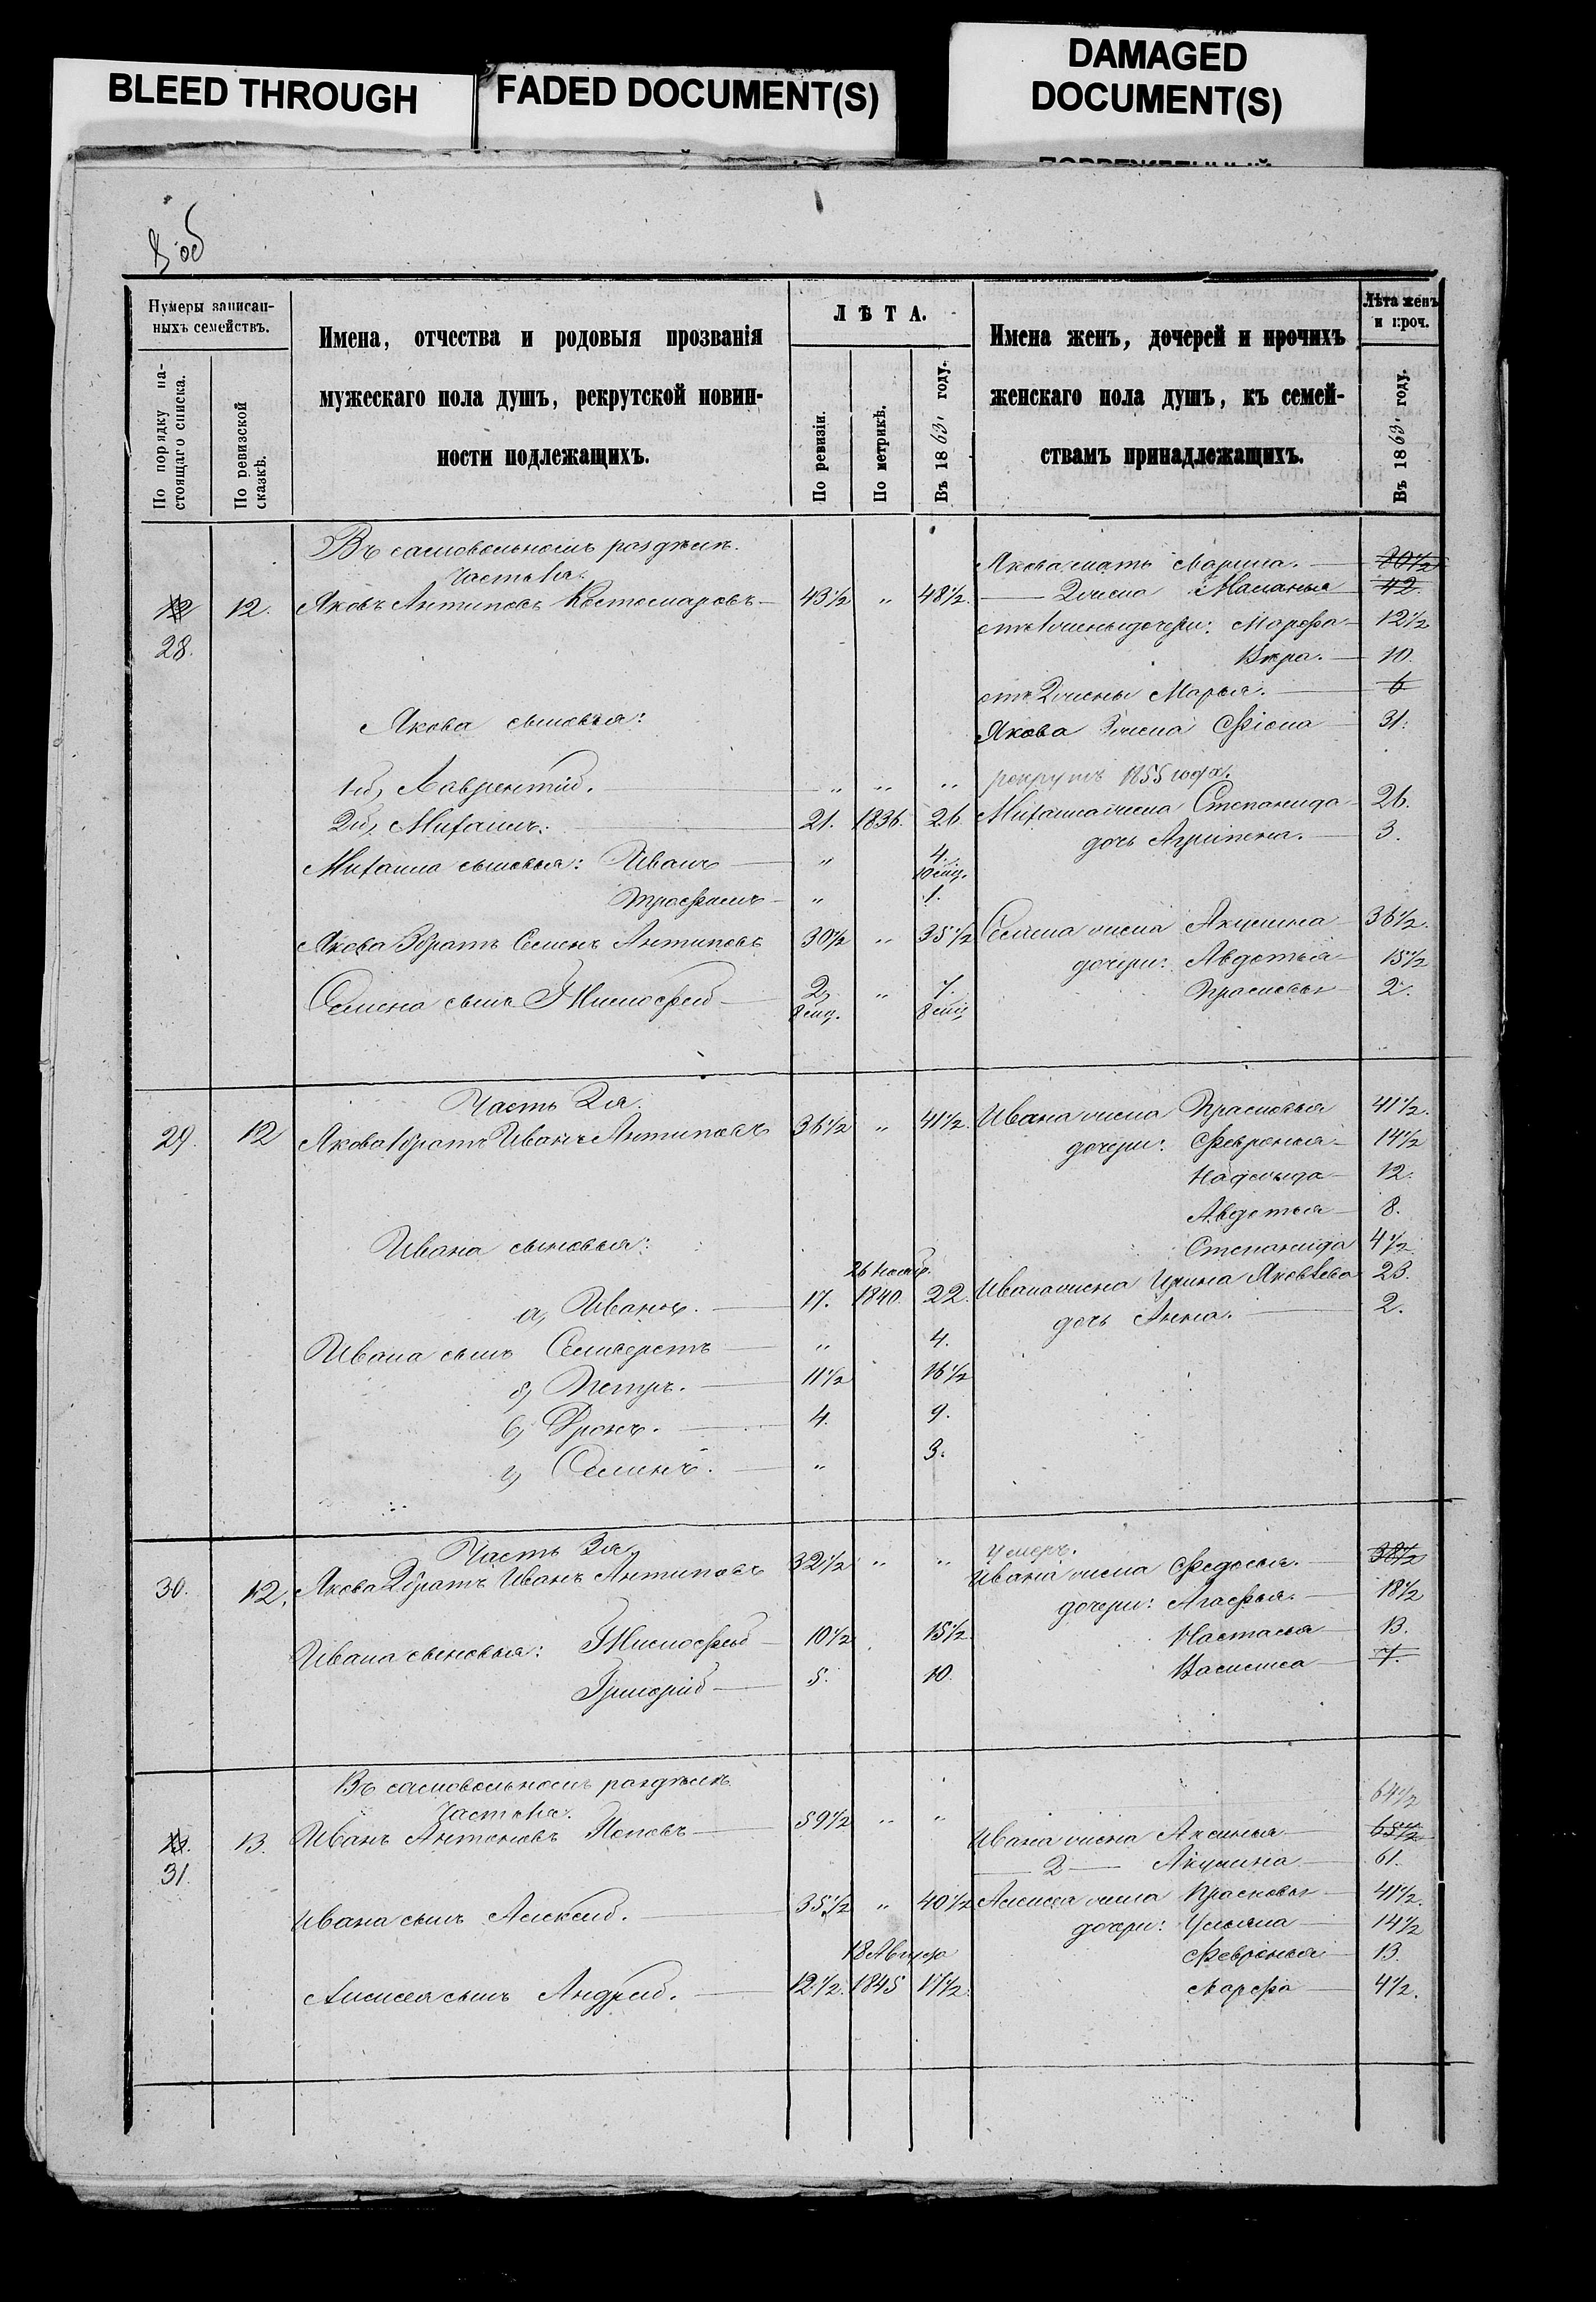 BLEED THROUGH
FADED DOCUMENT(S)
DAMAGED
DOCUMENT(S)
об
Нумеры записан-
ныхъ семействъ.
По порядку на-
стоящаго списка.
По ревизской
сказкѣ.
Имена, отчества и родовыя прозванія
мужескаго пола душъ, рекрутской повин-
ности подлежащихъ.
ЛѢТА.
По ревизіи.
По метрикѣ.
Въ 1863 году.
Имена женъ, дочерей и прочихъ
женскаго пола душъ, къ семей-
ствамъ принадлежащихъ.
Лѣта женъ
и проч.
Въ 1863 году.
Въ самовольномъ раздѣлѣ.
Часть 1я.
Якова мать Марина. 80½
12 12. Яковъ Антиповъ Костомаровъ 43½ " 48½. 2 жена Маланья 42
28. отъ 1 жены дочери: Марфа 12½
Вѣра. 10.
отъ 2 жены Марья. 6
Якова сыновья: Якова 3 жена Фіона 31.
1й, Лаврентій. " " " рекрутъ 1855 года.
2й, Михаилъ. 21. 1836. 26 Михаила жена Степанида 26.
дочь Агрипена. 3.
Михаила сыновья: Иванъ " 4.
10 мец.
Трофимъ " 1.
Якова 3 братъ Семенъ Антиповъ 30½ " 35½ Семена жена Акулина 36½.
дочери: Авдотья 15½
Семена сынъ Тимофей 2, " 7. Прасковья 2.
8 мец. 8 мец
Часть 2я.
29. 12 Якова 1 братъ Иванъ Антиповъ 36½ " 41½. Ивана жена Прасковья 41½.
дочери: Февронья 14½
Надежда 12.
Авдотья 8.
Ивана сыновья: Степанида 4½
26 Ноябр.
а, Иванъ. 17. 1840. 22. Ивана жена Ирина Яковлева 23.
дочь Анна. 2.
Ивана сынъ Селиверстъ " 4.
б, Петръ. 11½ 16½
в, Фронъ. 4. 9.
г, Семенъ. " 3.
Часть 3я
умеръ.
30. 12. Якова 2 братъ Иванъ Антиповъ 32½ " " Ивана жена Федосья. 38½
дочери: Агафья. 18½
Ивана сыновья: Тимофей 10½ 15½ Настасья 13.
Григорій 5. 10. Василиса 7.
Въ самовольномъ раздѣлѣ
Часть 1я. 64½
13. Иванъ Антоновъ Поповъ 59½ " " Ивана жена Аксинья 65½
31. 2 Акулина 61.
Ивана сынъ Алексей. 35½ " 40½ Алексея жена Прасковья 41½.
дочери: Ульяна 14½
18 Августа Февронья 13.
Алексея сынъ Андрей. 12½. 1845 17½. Марфа 4½.